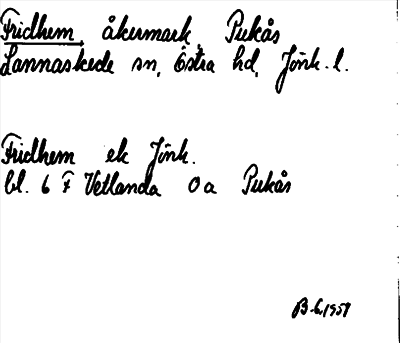 Fridhem, åkermark, Pukås
Lannaskede sn, Östra hd, Jönk. l.
Fridhem ek Jönk.
bl. 6 F Vetlanda Oa Pukås
B.G. 1959